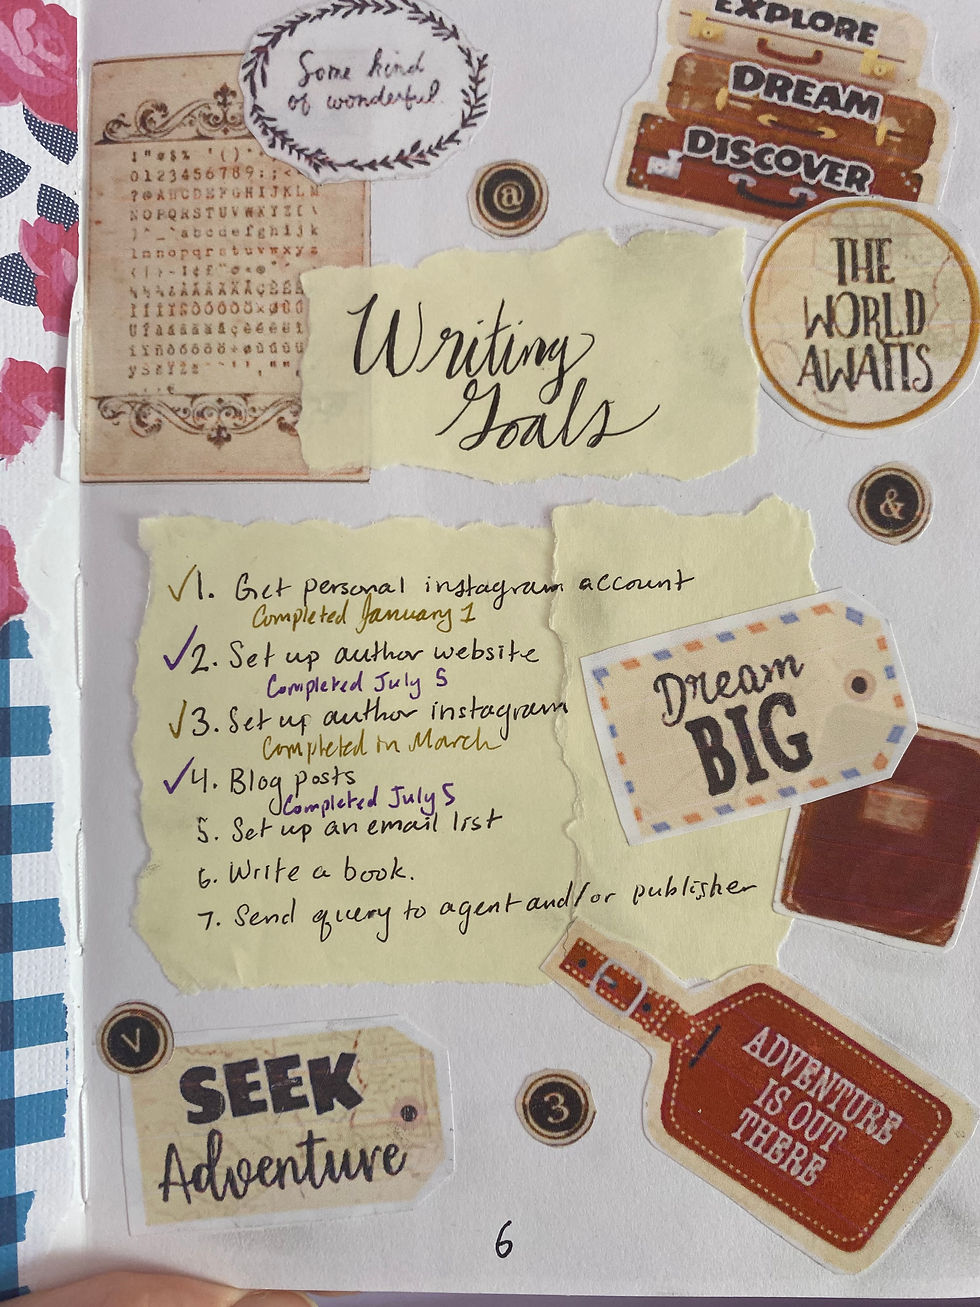 Some kind
of wonderful.
EXPLORE
DREAM
DISCOVER
! " # $ % ' ( ) *
0123456789:;<
?@ABCDEFGHIJKLM
NOPQRSTUVWXYZ[\
)^_`abcdefghijk
lmnopqrstuvwxyz
@
THE
WORLD
AWAITS
Writing
Goals
&
✓1. Get personal instagram account
Completed January 1
✓2. Set up author website
Completed July 5
✓3. Set up author instagram
Completed in March
✓4. Blog posts
Completed July 5
5. Set up an email list
6. Write a book.
7. Send query to agent and/or publisher
Dream
BIG
V
SEEK
Adventure
3
ADVENTURE
IS OUT
THERE
6